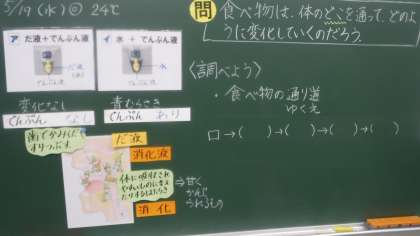 5/19(水)◎ 24℃
問 食べ物は、体のどこを通って、どのよ
うに変化していくのだろう。
ア だ液+でんぷん液
だ液
でんぷん液
イ 水+でんぷん液
水
でんぷん液
変化なし
でんぷん なし
青むらさき
でんぷん あり
歯でかみくだき
すりつぶす。
だ液
消化液
体に吸収され
やすいものに変え
たりするはたらき
消化
⇒甘く
かんじ
られるもの
〈調べよう〉
・食べ物の通り道
ゆくえ
口→( )→( )→( )→( )